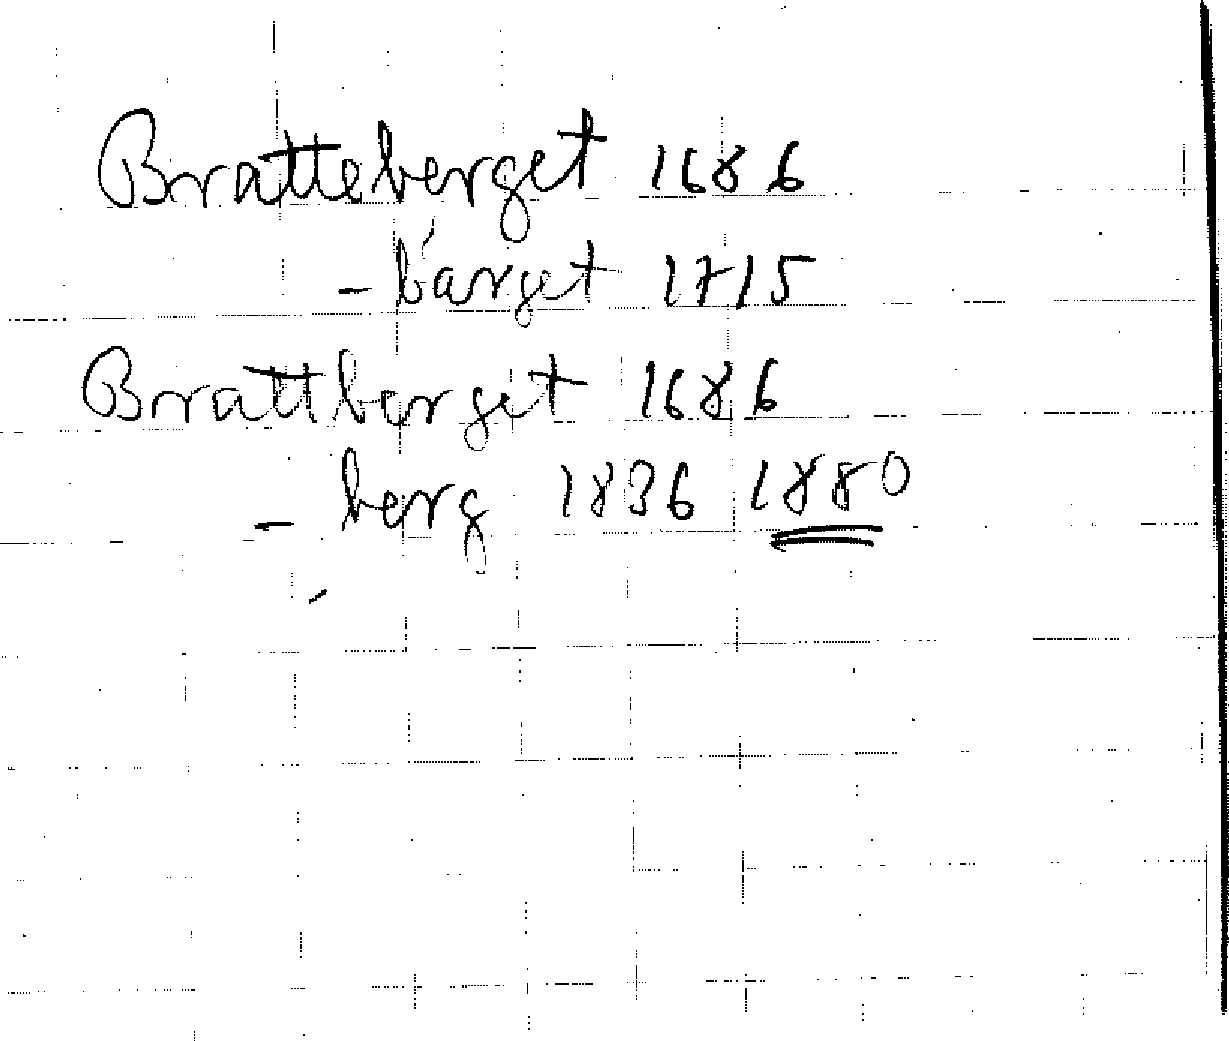 Bratteberget 1686
- bärget 1715
Brattberget 1686
- berg 1836 1880